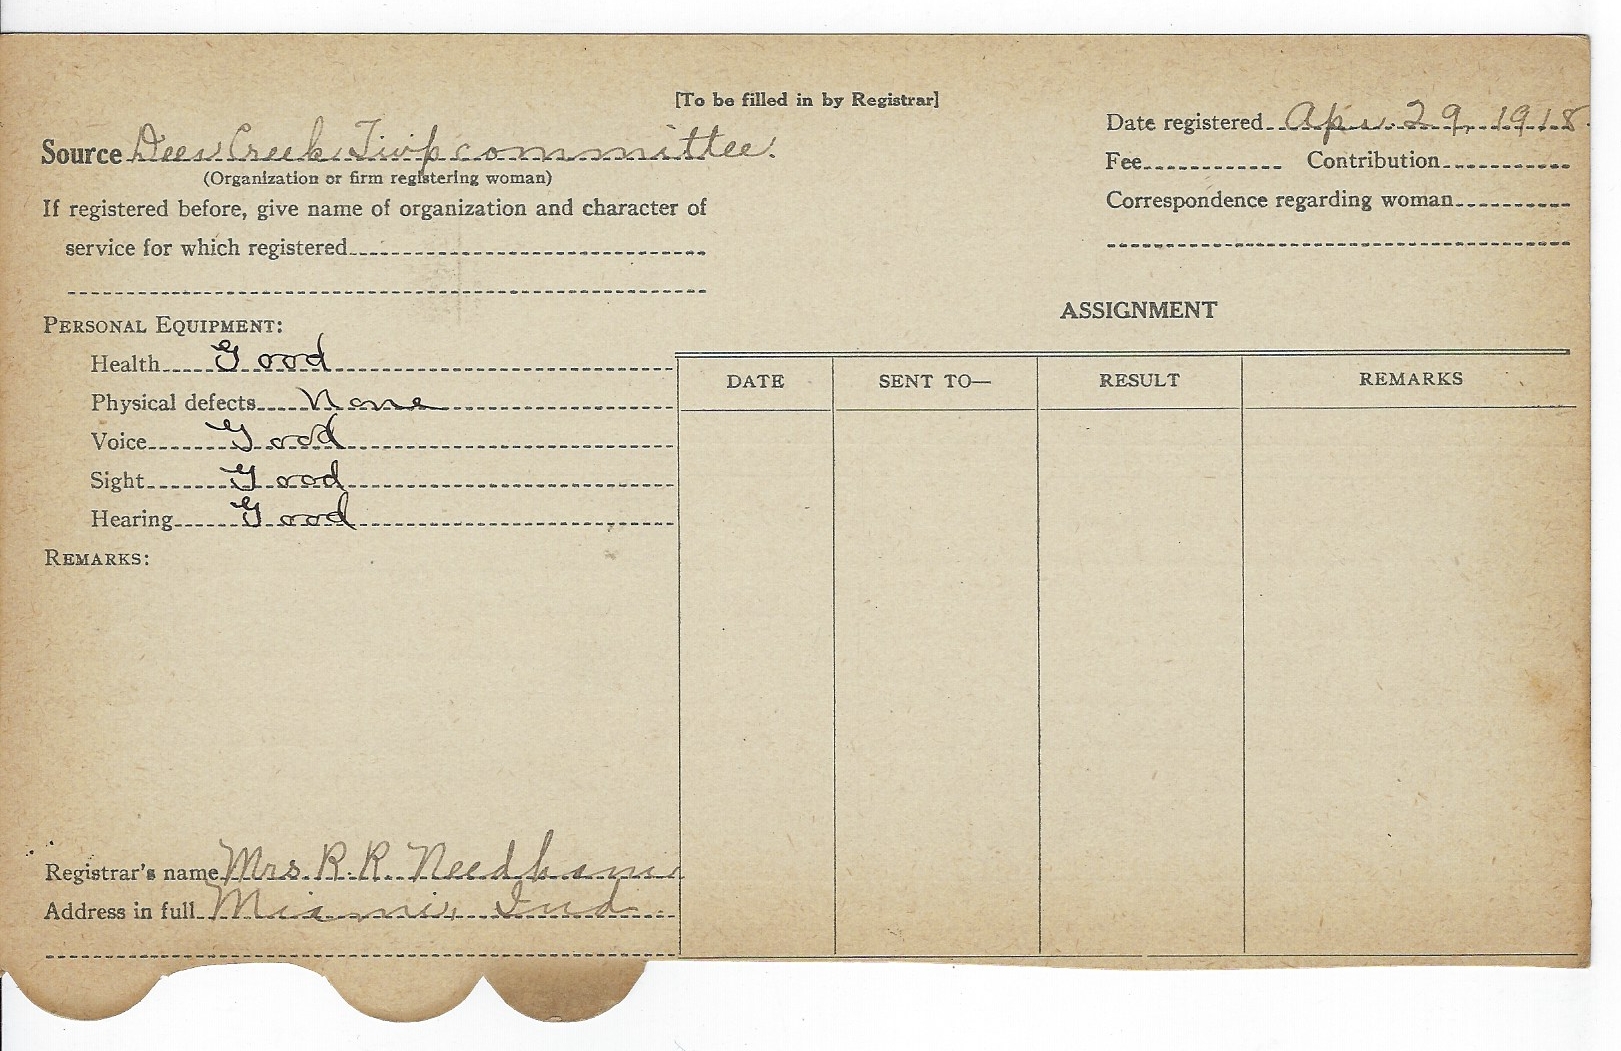 [To be filled in by Registrar]
Source Deer Creek Twp committee.
(Organization or firm registering woman)
If registered before, give name of organization and character of
service for which registered
Date registered Apr. 29, 1918.
Fee Contribution
Correspondence regarding woman
PERSONAL EQUIPMENT:
Health Good
Physical defects None
Voice Good
Sight Good
Hearing Good
REMARKS:
ASSIGNMENT
DATE SENT TO— RESULT REMARKS
Registrar's name Mrs. R. R. Needham
Address in full Miami, Ind.